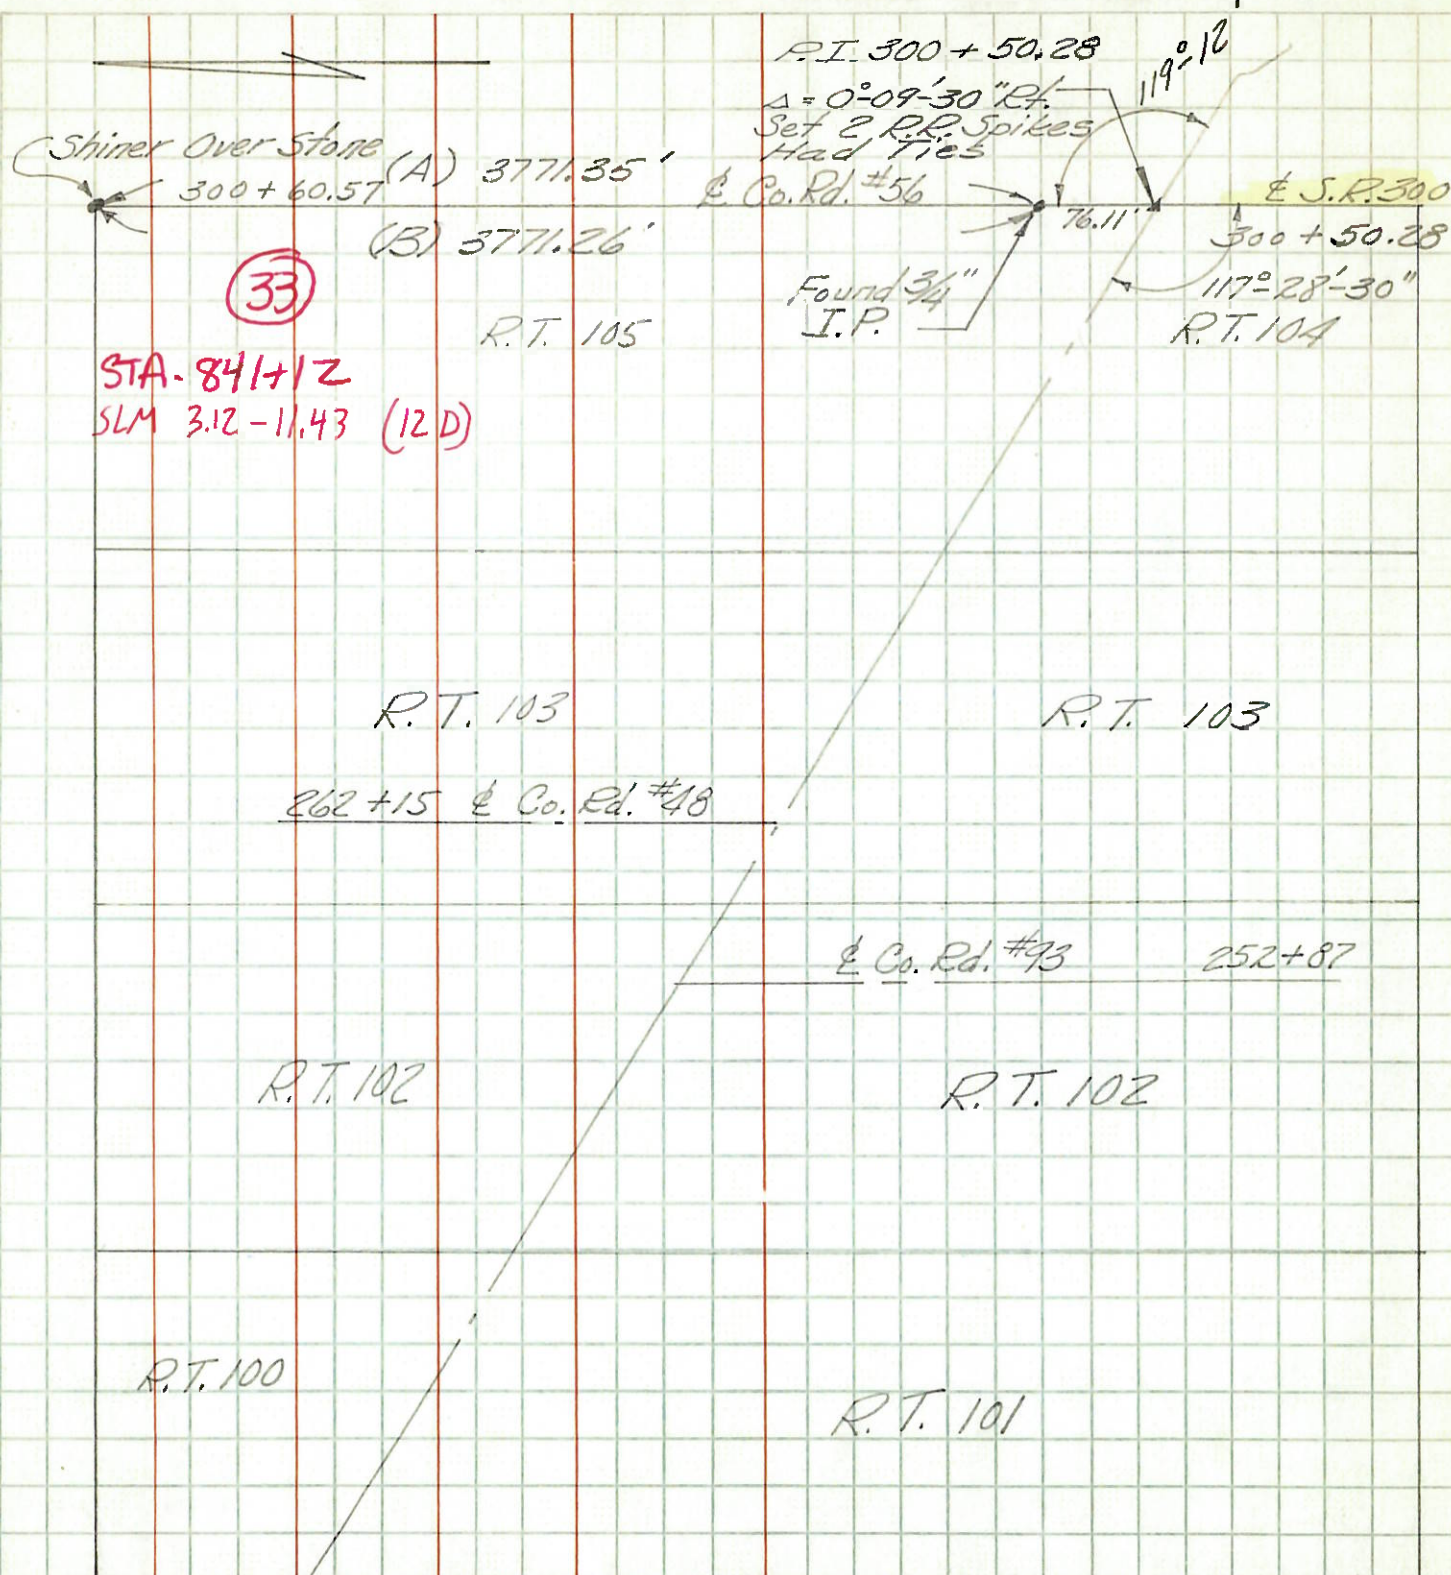 P.I. 300 + 50.28
119°-12'
Δ = 0°-09'-30" Rt.
Set 2 R.R. Spikes
Had Ties
Shiner Over Stone
300 + 60.57
(A) 3771.35'
℄ Co. Rd. #56
76.11'
℄ S.R. 300
300 + 50.28
(B) 3771.26'
33
Found 3/4"
I.P.
117°-28'-30"
R.T. 105
R.T. 104
STA. 841+12
SLM 3.12 - 11.43 (12 D)
R.T. 103
R.T. 103
262 +15 ℄ Co. Rd. #48
℄ Co. Rd. #93 252+87
R.T. 102
R.T. 102
R.T. 100
R.T. 101